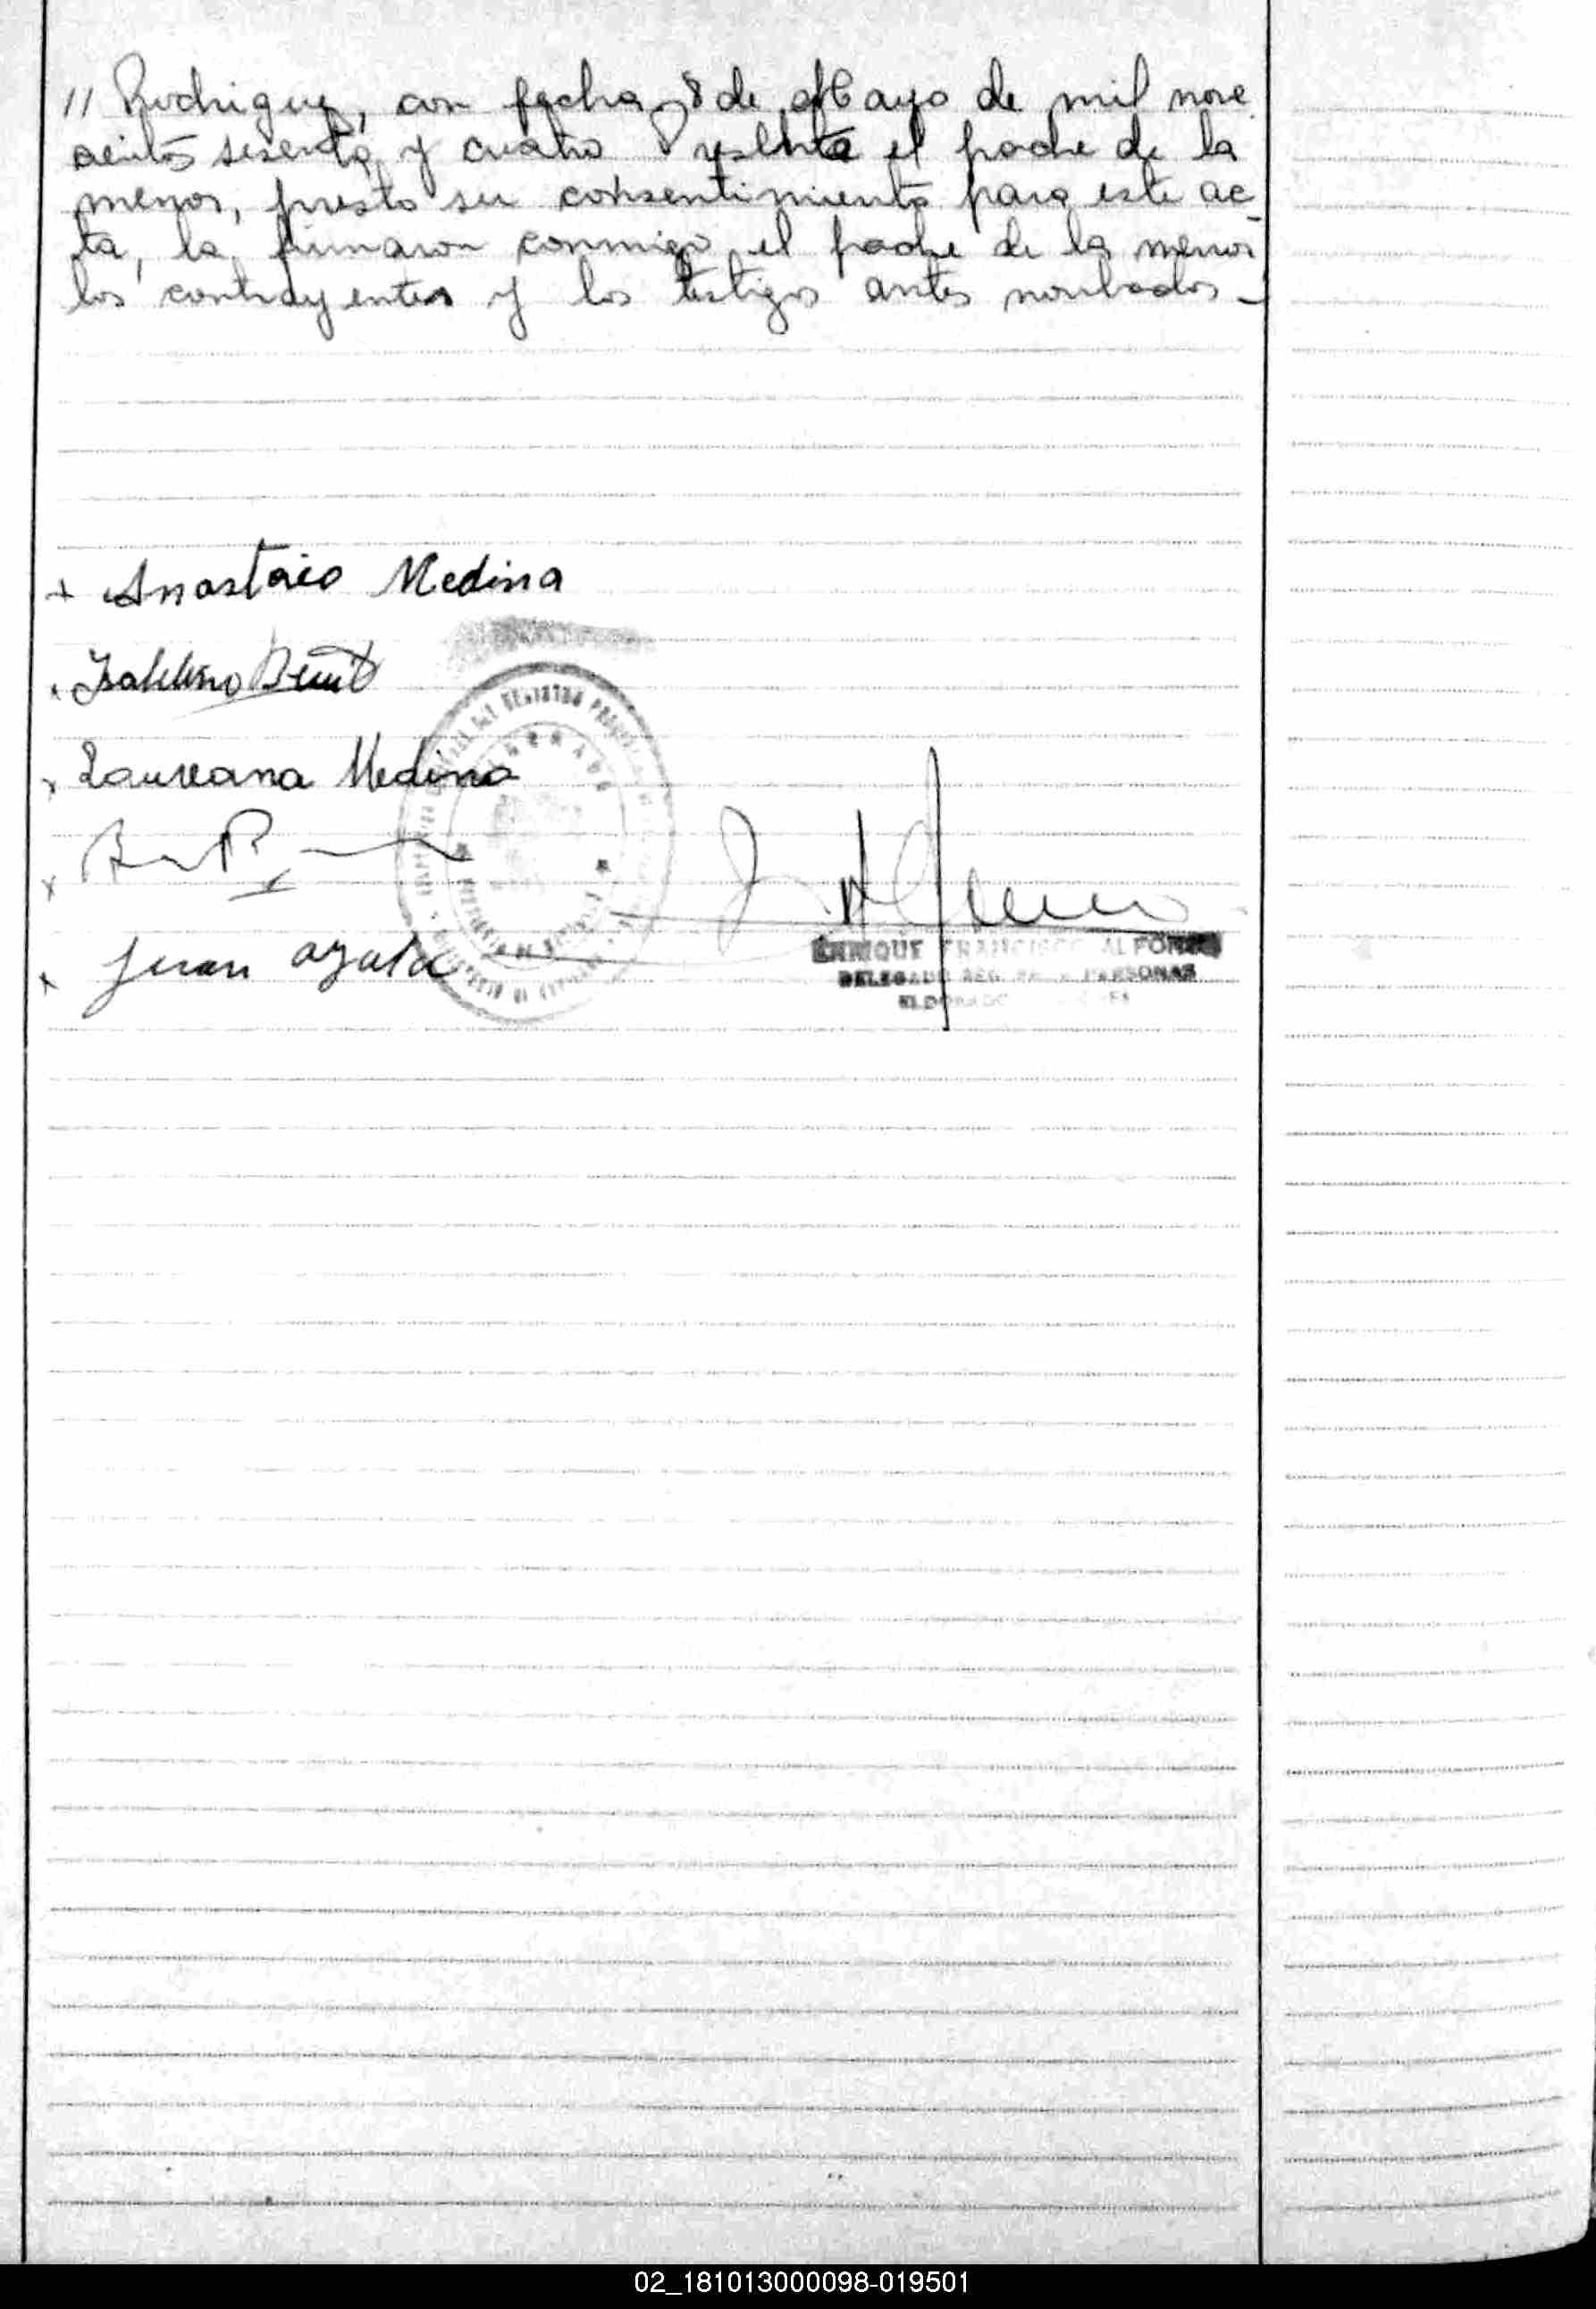 // Rodriguez, con fecha 8 de Mayo de mil nove
cientos sesenta y cuatro Presente el padre de la
menor, presto su consentimiento para este ac_
ta, la firmaron conmigo el padre de la menor
los contrayentes y los testigos antes nombrados_
+ Anastacio Medina
Laureana Medina
Juan ayala
ENRIQUE FRANCISCO ALFONZO
DELEGADO REG. PERSONAS
ELDORADO
02_181013000098-019501